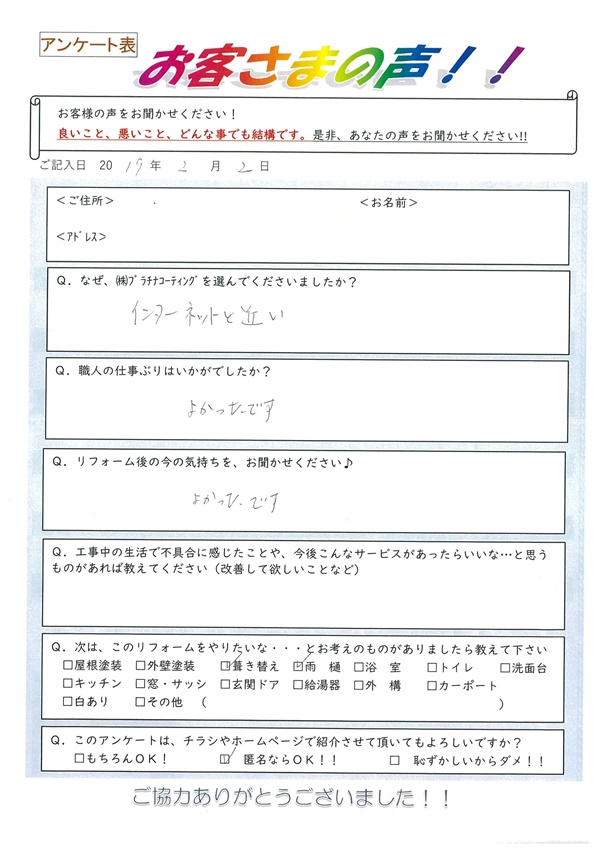 アンケート表
お客さまの声！！
お客様の声をお聞かせください！
良いこと、悪いこと、どんな事でも結構です。是非、あなたの声をお聞かせください!!
ご記入日 2019年 2月 2日
＜ご住所＞ ＜お名前＞
＜ｱﾄﾞﾚｽ＞
Q．なぜ、㈱ﾌﾟﾗﾁﾅｺｰﾃｨﾝｸﾞを選んでくださいましたか？
インターネットと近い
Q．職人の仕事ぶりはいかがでしたか？
よかったです
Q．リフォーム後の今の気持ちを、お聞かせください♪
よかったです
Q．工事中の生活で不具合に感じたことや、今後こんなサービスがあったらいいな…と思う
ものがあれば教えてください（改善して欲しいことなど）
Q．次は、このリフォームをやりたいな・・・とお考えのものがありましたら教えて下さい
□屋根塗装 □外壁塗装 ☑葺き替え ☑雨 樋 □浴 室 □トイレ □洗面台
□キッチン □窓・サッシ □玄関ドア □給湯器 □外 構 □カーポート
□白あり □その他 （ ）
Q．このアンケートは、チラシやホームページで紹介させて頂いてもよろしいですか？
□もちろんＯＫ！ ☑ 匿名ならＯＫ！！ □ 恥ずかしいからダメ！！
ご協力ありがとうございました！！